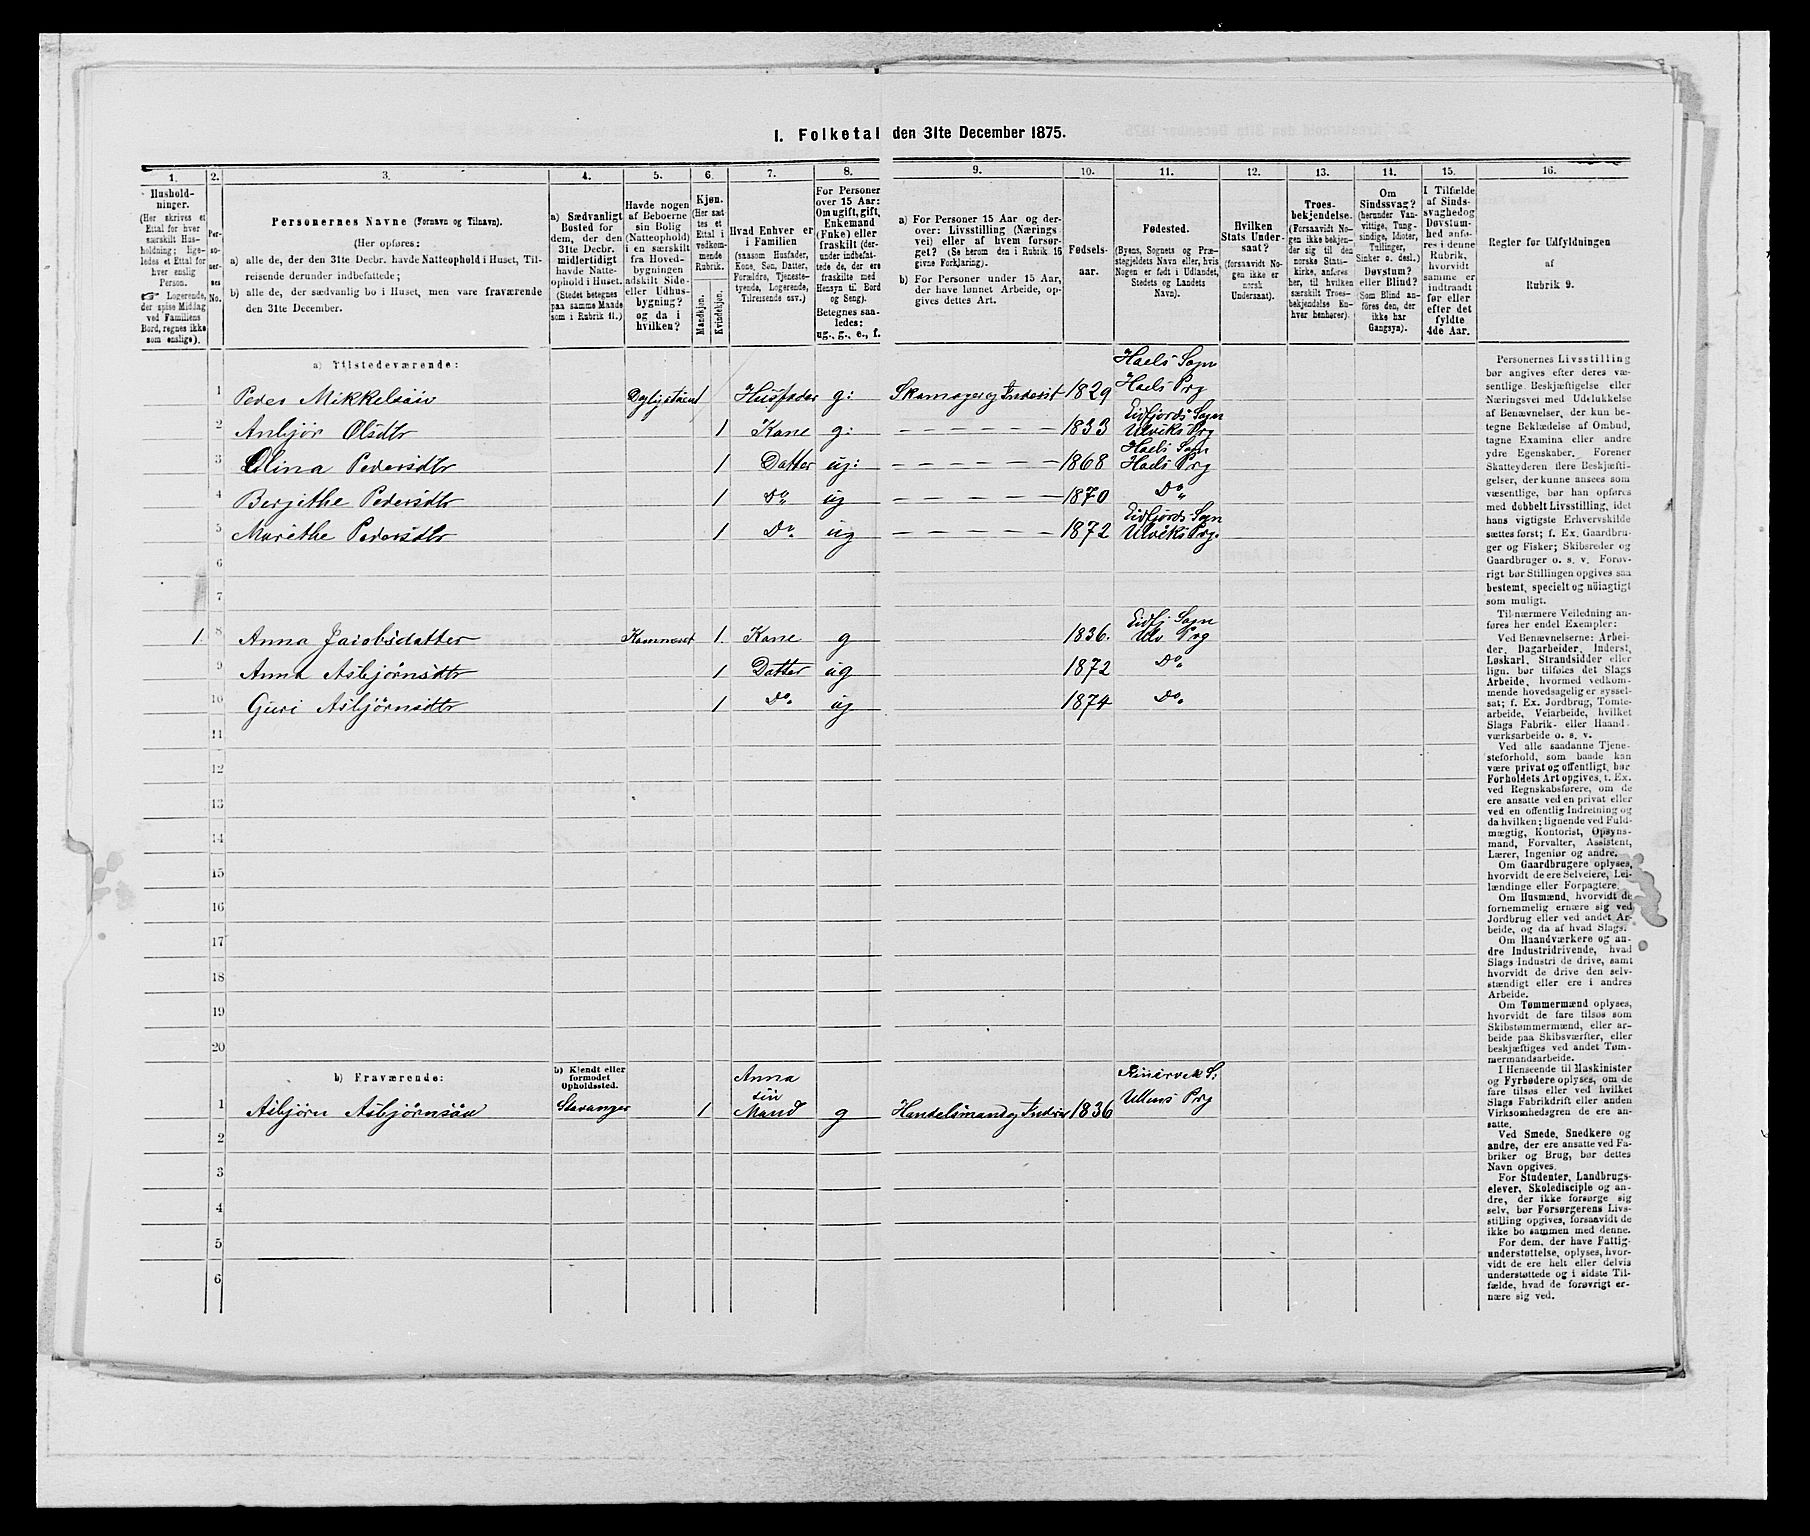 I. Folketal den 31te December 1875.
1. 2. 3. 4. 5. 6. 7. 8. 9. 10. 11. 12. 13. 14. 15. 16.
Hushold-
ninger.
(Her skrives et
Ettal for hver
særskilt Hus-
holdning; lige-
ledes et Ettal for
hver enslig
Person.
☞ Logerende,
der spise Middag
ved Familiens
Bord, regnes ikke
som enslige).
Per-
so-
ner-
nes
No.
Personernes Navne (Fornavn og Tilnavn).
(Her opføres:
a) alle de, der den 31te Decbr. havde Natteophold i Huset, Til-
reisende derunder indbefattede;
b) alle de, der sædvanlig bo i Huset, men vare fraværende
den 31te December.
a) Sædvanligt
Bosted for
dem, der den
31te Decbr.
midlertidigt
havde Natte-
ophold i Huset.
(Stedet betegnes
paa samme Maade
som i Rubrik 11.)
Havde nogen
af Beboerne
sin Bolig
(Natteophold)
i en særskilt
fra Hoved-
bygningen
adskilt Side-
eller Udhus-
bygning?
og da i
hvilken?
Kjøn.
(Her sæt-
tes et
Ettal i
vedkom-
mende
Rubrik.
Mandkjøn.
Kvindekjøn.
Hvad Enhver er
i Familien
(saasom Husfader,
Kone, Søn, Datter,
Forældre, Tjeneste-
tyende, Logerende,
Tilreisende osv.)
For Personer
over 15 Aar:
Om ugift, gift,
Enkemand
(Enke) eller
fraskilt (der-
under indbefat-
tede de, der ere
fraskilte med
Hensyn til Bord
og Seng).
Betegnes saa-
ledes:
ug., g., e., f.
a) For Personer 15 Aar og der-
over: Livsstilling (Nærings-
vei) eller af hvem forsør-
get? (Se herom den i Rubrik 16
givne Forklaring).
b) For Personer under 15 Aar,
der have lønnet Arbeide, op-
gives dettes Art.
Fødsels-
aar.
Fødested.
(Byens, Sognets og Præ-
stegjeldets Navn eller, hvis
Nogen er født i Udlandet,
Stedets og Landets
Navn).
Hvilken
Stats Under-
saat?
(forsaavidt No-
gen ikke er
norsk
Undersaat).
Troes-
bekjendelse.
(Forsaavidt No-
gen ikke bekjen-
der sig til den
norske Stats-
kirke, anføres
her, til hvilken
særskilt Troes-
bekjendelse En-
hver henhører).
Om
Sindssvag?
(herunder Van-
vittige, Tung-
sindige, Idioter,
Tullinger,
Sinker o. desl.)
Døvstum?
eller Blind?
(Som Blind an-
føres den, der
ikke har
Gangsyn).
I Tilfælde
af Sinds-
svaghed og
Døvstum-
hed anfø-
res i denne
Rubrik,
hvorvidt
samme er
indtraadt
før eller
efter det
fyldte
4de Aar.
Regler før Udfyldningen
af
Rubrik 9.
a) Tilstedeværende:
1 Peder Mikkelsøn 1 Husfader g: Skomager og Inderst 1829 Haels Sogn Haels Prg
2 Anbjør Olsdtr 1 Kone g: 1833 Eidfjords Sogn Ulviks Prg
3 Olina Pedersdtr 1 Datter ug: 1868 Haels Sogn Haels Prg
4 Bergithe Pedersdtr 1 Do ug 1870 Do
5 Marethe Pedersdtr 1 Do ug 1872 Eidfjords Sogn Ulviks Prg.
6
7
1 8 Anna Jacobsdatter 1. Kone g 1836. Eidfj Sogn Ulv Prg
9 Anna Asbjørnsdtr 1 Datter ug 1872 Do
10 Guri Asbjørnsdtr 1 Do. ug 1874 Do.
11
12
13
14
15
16
17
18
19
20
b) Fraværende:
b) Kjendt eller
formodet
Opholdssted.
1 Asbjørn Asbjørnsøn Stavanger 1 Anna sin Mand g Handelsmand og 1836 Prg
2
3
4
5
6
Personernes Livsstilling
bør angives efter deres væ-
sentlige Beskjæftigelse eller
Næringsvei med Udelukkelse
af Benævnelser, der kun be-
tegne Beklædelse af Ombud,
tagne Examina eller andre
ydre Egenskaber. Forener
Skatteyderen flere Beskjæfti-
gelser, der kunne ansees som
væsentlige, bør han opføres
med dobbelt Livsstilling, idet
hans vigtigste Erhvervskilde
sættes først; f. Ex. Gaardbru-
ger og Fisker; Skibsreder og
Gaardbruger o. s. v. Forøv-
rigt bør Stillingen opgives saa
bestemt, specielt og nöiagtigt
som muligt.
Til nærmere Veiledning an-
føres her endel Exempler:
Ved Benævnelserne: Arbei-
der, Dagarbeider, Inderst,
Løskarl, Strandsidder eller
lign. bør tilføies det Slags
Arbeide, hvormed vedkom-
mende hovedsagelig er syssel-
sat; f. Ex. Jordbrug, Tomte-
arbeide, Veiarbeide, hvilket
Slags Fabrik- eller Haand-
værksarbeide o. s. v.
Ved alle saadanne Tjene-
steforhold, som baade kan
være privat og offentligt, bør
Forholdets Art opgives, f. Ex.
ved Regnskabsførere, om de
ere ansatte ved en privat eller
ved en offentlig Indretning og
da hvilken; lignende ved Fuld-
mægtig, Kontorist, Opsyns-
mand, Forvalter, Assistent,
Lærer, Ingeniør og andre.
Om Gaardbrugere oplyses,
hvorvidt de ere Selveiere, Lei-
lændinge eller Forpagtere.
Om Husmænd, hvorvidt de
fornemmelig ernære sig ved
Jordbrug eller ved andet Ar-
beide, og da af hvad Slags.
Om Haandværkere og an-
dre Industridrivende, hvad
Slags Industri de drive, samt
hvorvidt de drive den selv-
stændigt eller ere i andres
Arbeide.
Om Tømmermænd oplyses,
hvorvidt de fare tilsøs som
Skibstømmermænd, eller ar-
beide paa Skibsværfter, eller
beskjæftiges ved andet Tøm-
mermandsarbeide.
I Henseende til Maskinister
og Fyrbødere oplyses, om de
fare tilsøs eller ved hvilket
Slags Fabrikdrift eller anden
Virksomhedsgren de ere an-
satte.
Ved Smede, Snedkere og
andre, der ere ansatte ved Fa-
briker og Brug, bør dettes
Navn opgives.
For Studenter, Landbrugs-
elever, Skoledisciple og an-
dre, der ikke forsørge sig
selv, bør Forsørgerens Livs-
stilling opgives, forsaavidt de
ikke bo sammen med denne.
For dem, der have Fattig-
understøttelse, oplyses, hvor-
vidt de ere helt eller delvis
understøttede og i sidste Til-
fælde, hvad de forøvrigt er-
nære sig ved.